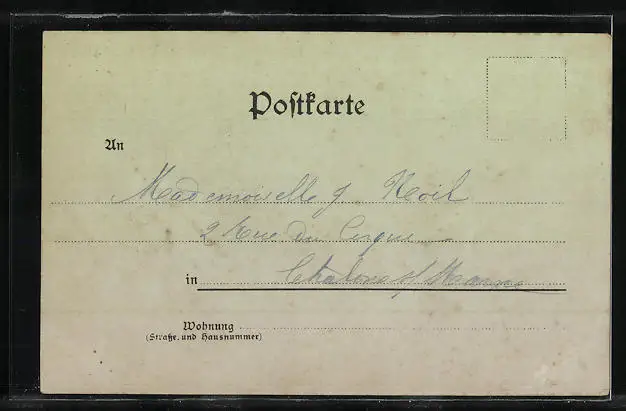 Postkarte
An
Mademoiselle J Noil
2 Rue du Cirque
in Chalons s/ Marne
Wohnung
(Straße und Hausnummer)